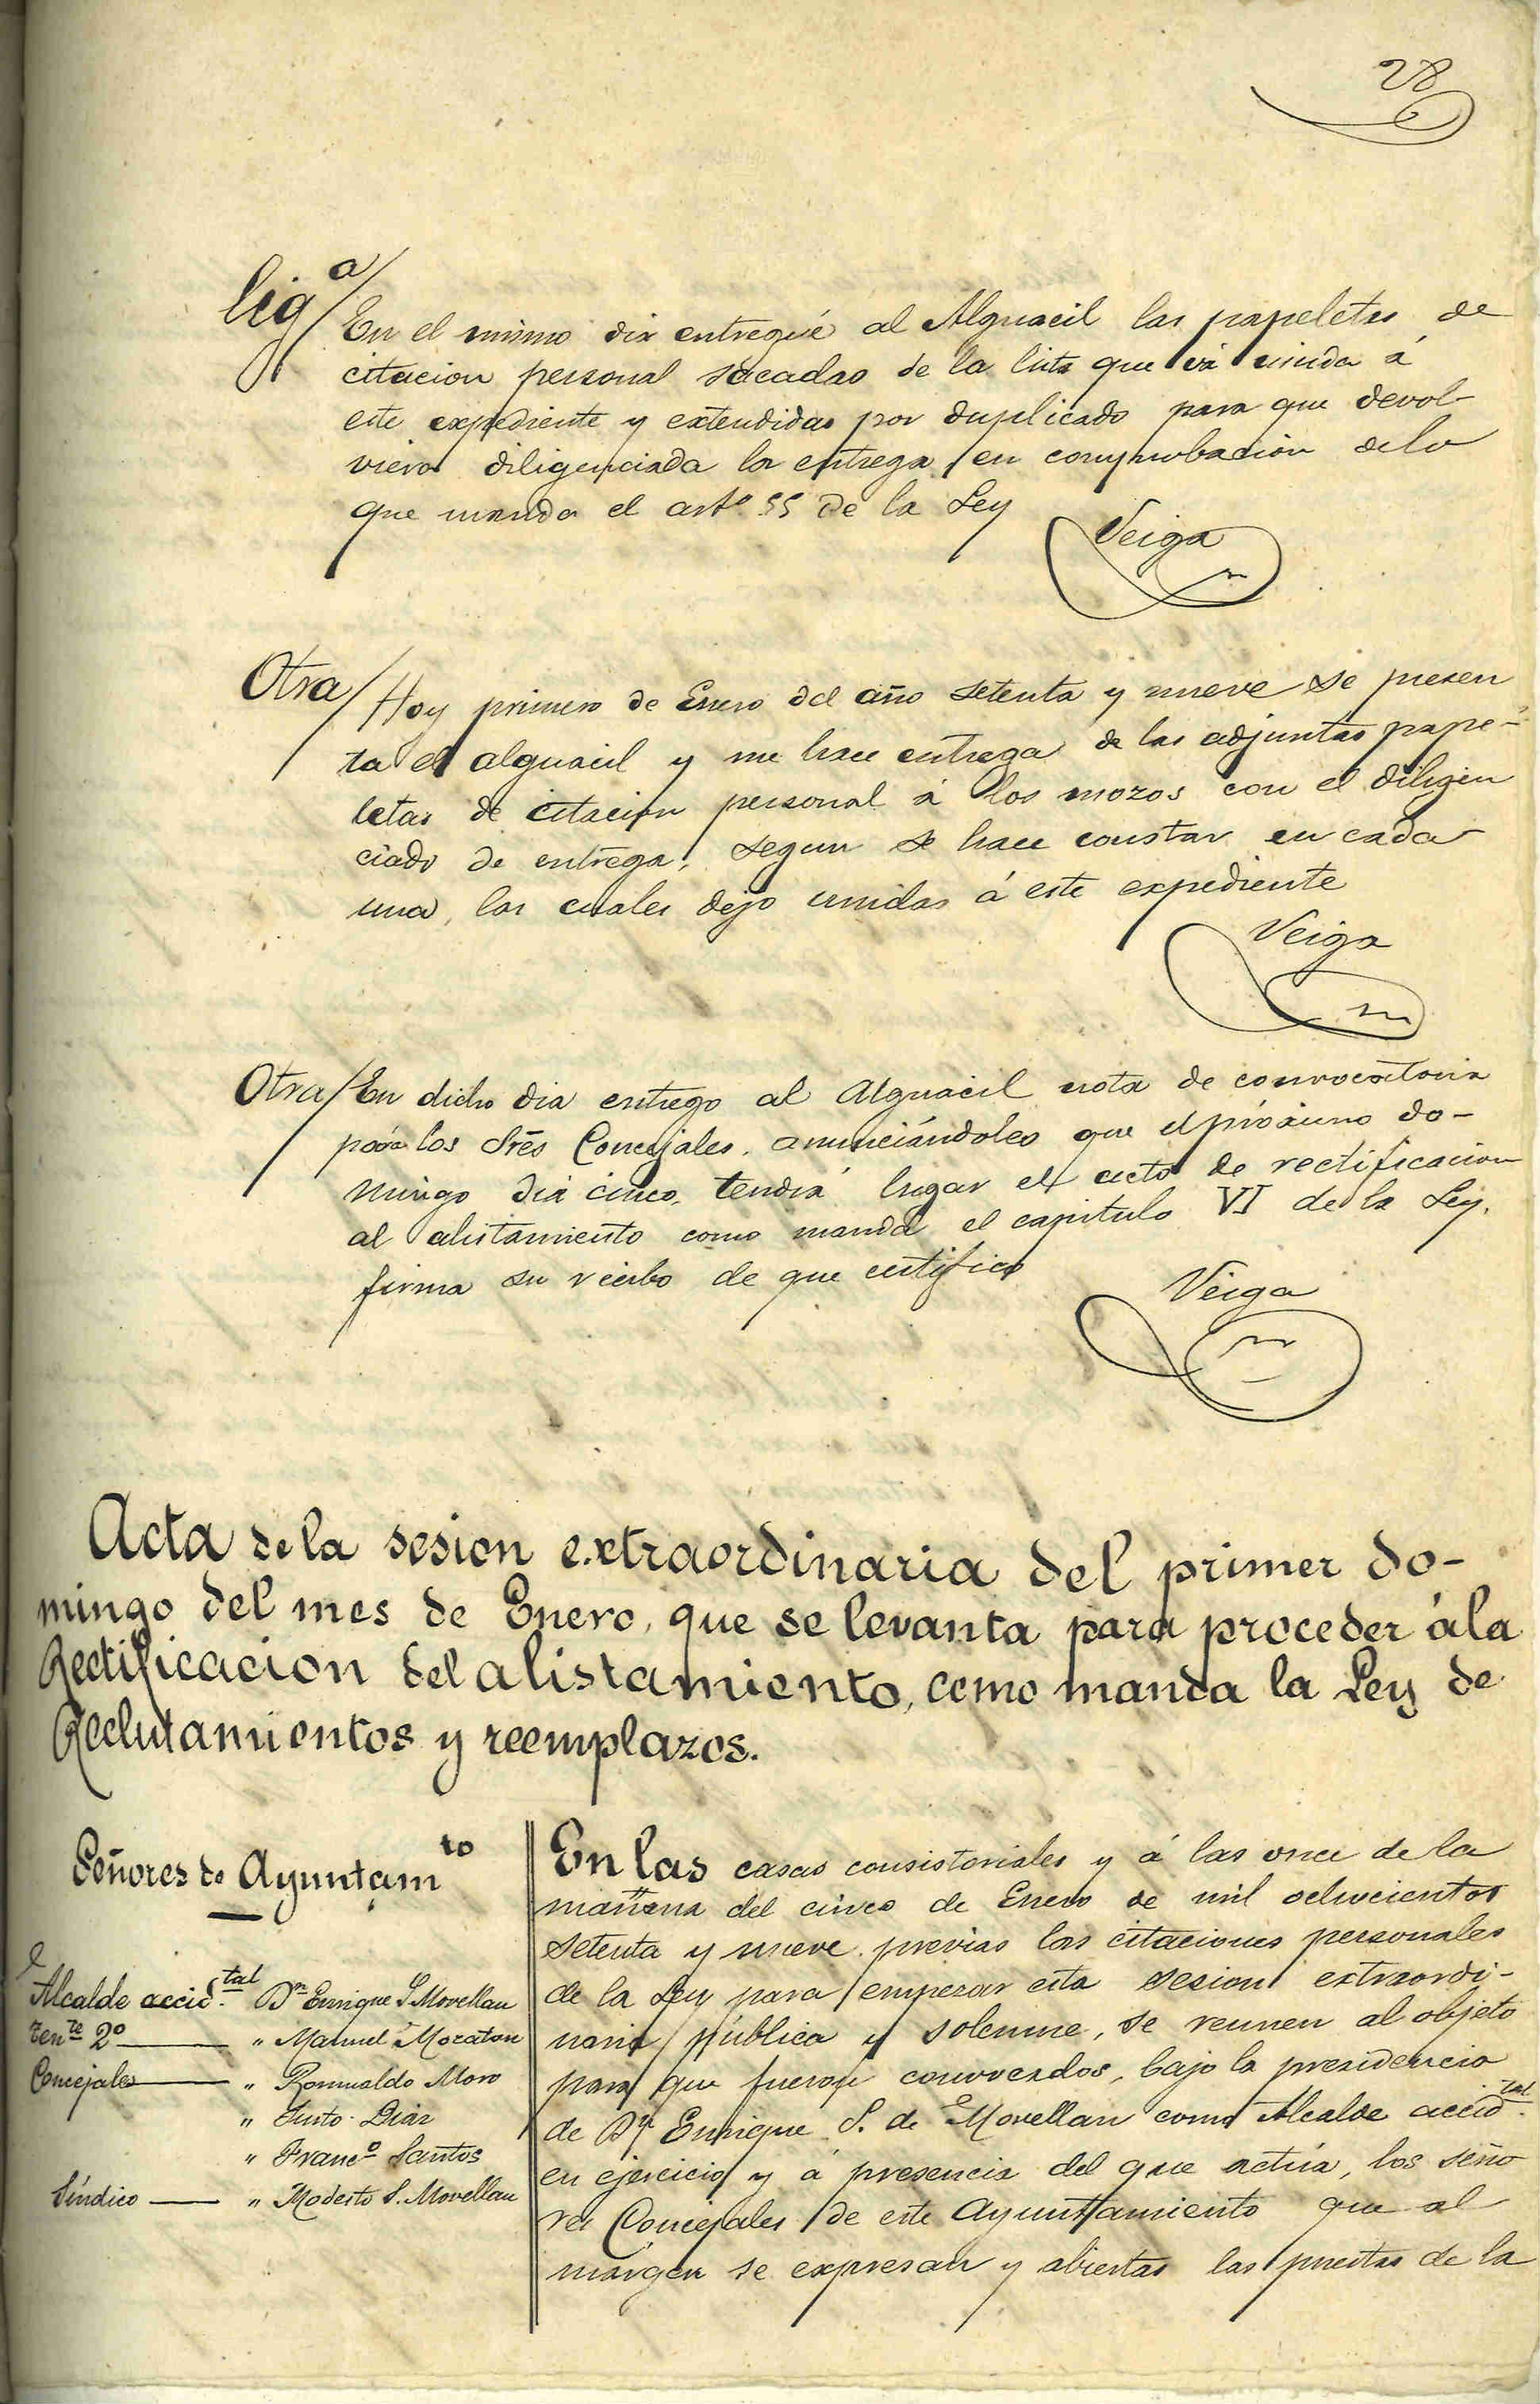 28
Lig.ª / En el mismo dia entregué al Alguacil las papeletas de
citacion personal sacadas de la lista que vá unida á
este expediente y extendidas por duplicado para que devol-
viera diligenciada la entrega en comprobacion de lo
que manda el artº 55 de la Ley
Veiga
Otra / Hoy primero de Enero del año setenta y nueve se presen
ta el alguacil y me hace entrega de las adjuntas pape-
letas de citacion personal á los mozos con el diligen
ciado de entrega, segun se hace constar en cada
una, las cuales dejo unidas á este expediente
Veiga
Otra / En dicho dia entrego al Alguacil nota de convocatoria
para los Sres Concejales, anunciándoles que el próximo do-
mingo dia cinco, tendrá lugar el acto de rectificacion
al alistamiento como manda el capitulo VI de la Ley.
firma su recibo de que certifico
Veiga
Acta de la sesion extraordinaria del primer do-
mingo del mes de Enero, que se levanta para proceder á la
Rectificacion del alistamiento, como manda la Ley de
Reclutamientos y reemplazos.
Señores de Ayuntam.to
Alcalde accid.tal Dn Enrique S. Movellan
Tente 2º — " Manuel Mozaton
Concejales — " Romualdo Moro
" Justo Diaz
" Francº Santos
Síndico — " Modesto S. Movellan
En las casas consistoriales y á las once de la
mañana del cinco de Enero de mil ochocientos
setenta y nueve, previas las citaciones personales
de la Ley para empezar esta sesion extraordi-
naria pública y solemne, se reunen al objeto
para que fueron convocados, bajo la presidencia
de Dn Enrique S. de Movellan como Alcalde accid.tal
en ejercicio y á presencia del que actúa, los seño
res Concejales de este Ayuntamiento que al
margen se expresan y abiertas las puertas de la